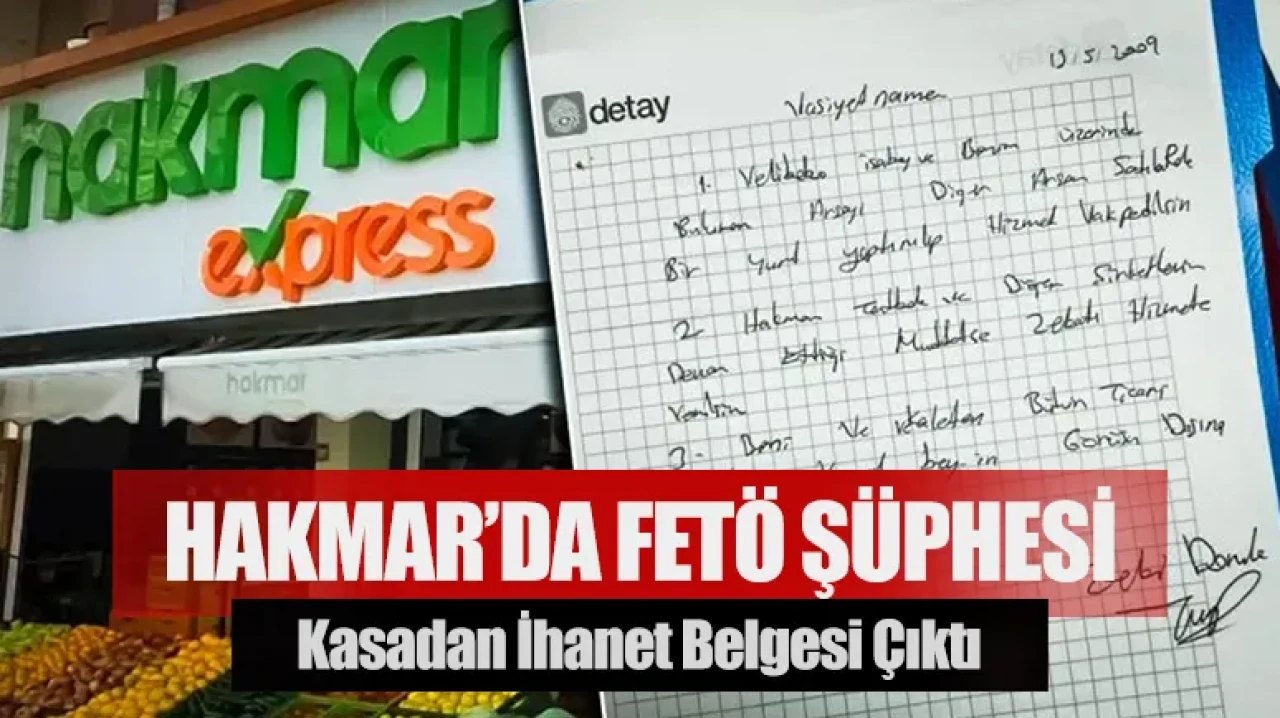 hakmar
express
hakmar
detay
13/5/2009
Vasiyetname
1. ve Benim üzerimde
Bulunan Arsayı Diğer Arsa
Bir Yurt yaptırılıp Hizmet Vakfedilsin
2 Hakmar ve Diğer Şirketlerin
Devam Ettiği Müddetçe Zekatı Hizmete
Verilsin
3- Beni ve Bütün Ticari
bey'in Görüş Dışına
HAKMAR'DA FETÖ ŞÜPHESİ
Kasadan İhanet Belgesi Çıktı